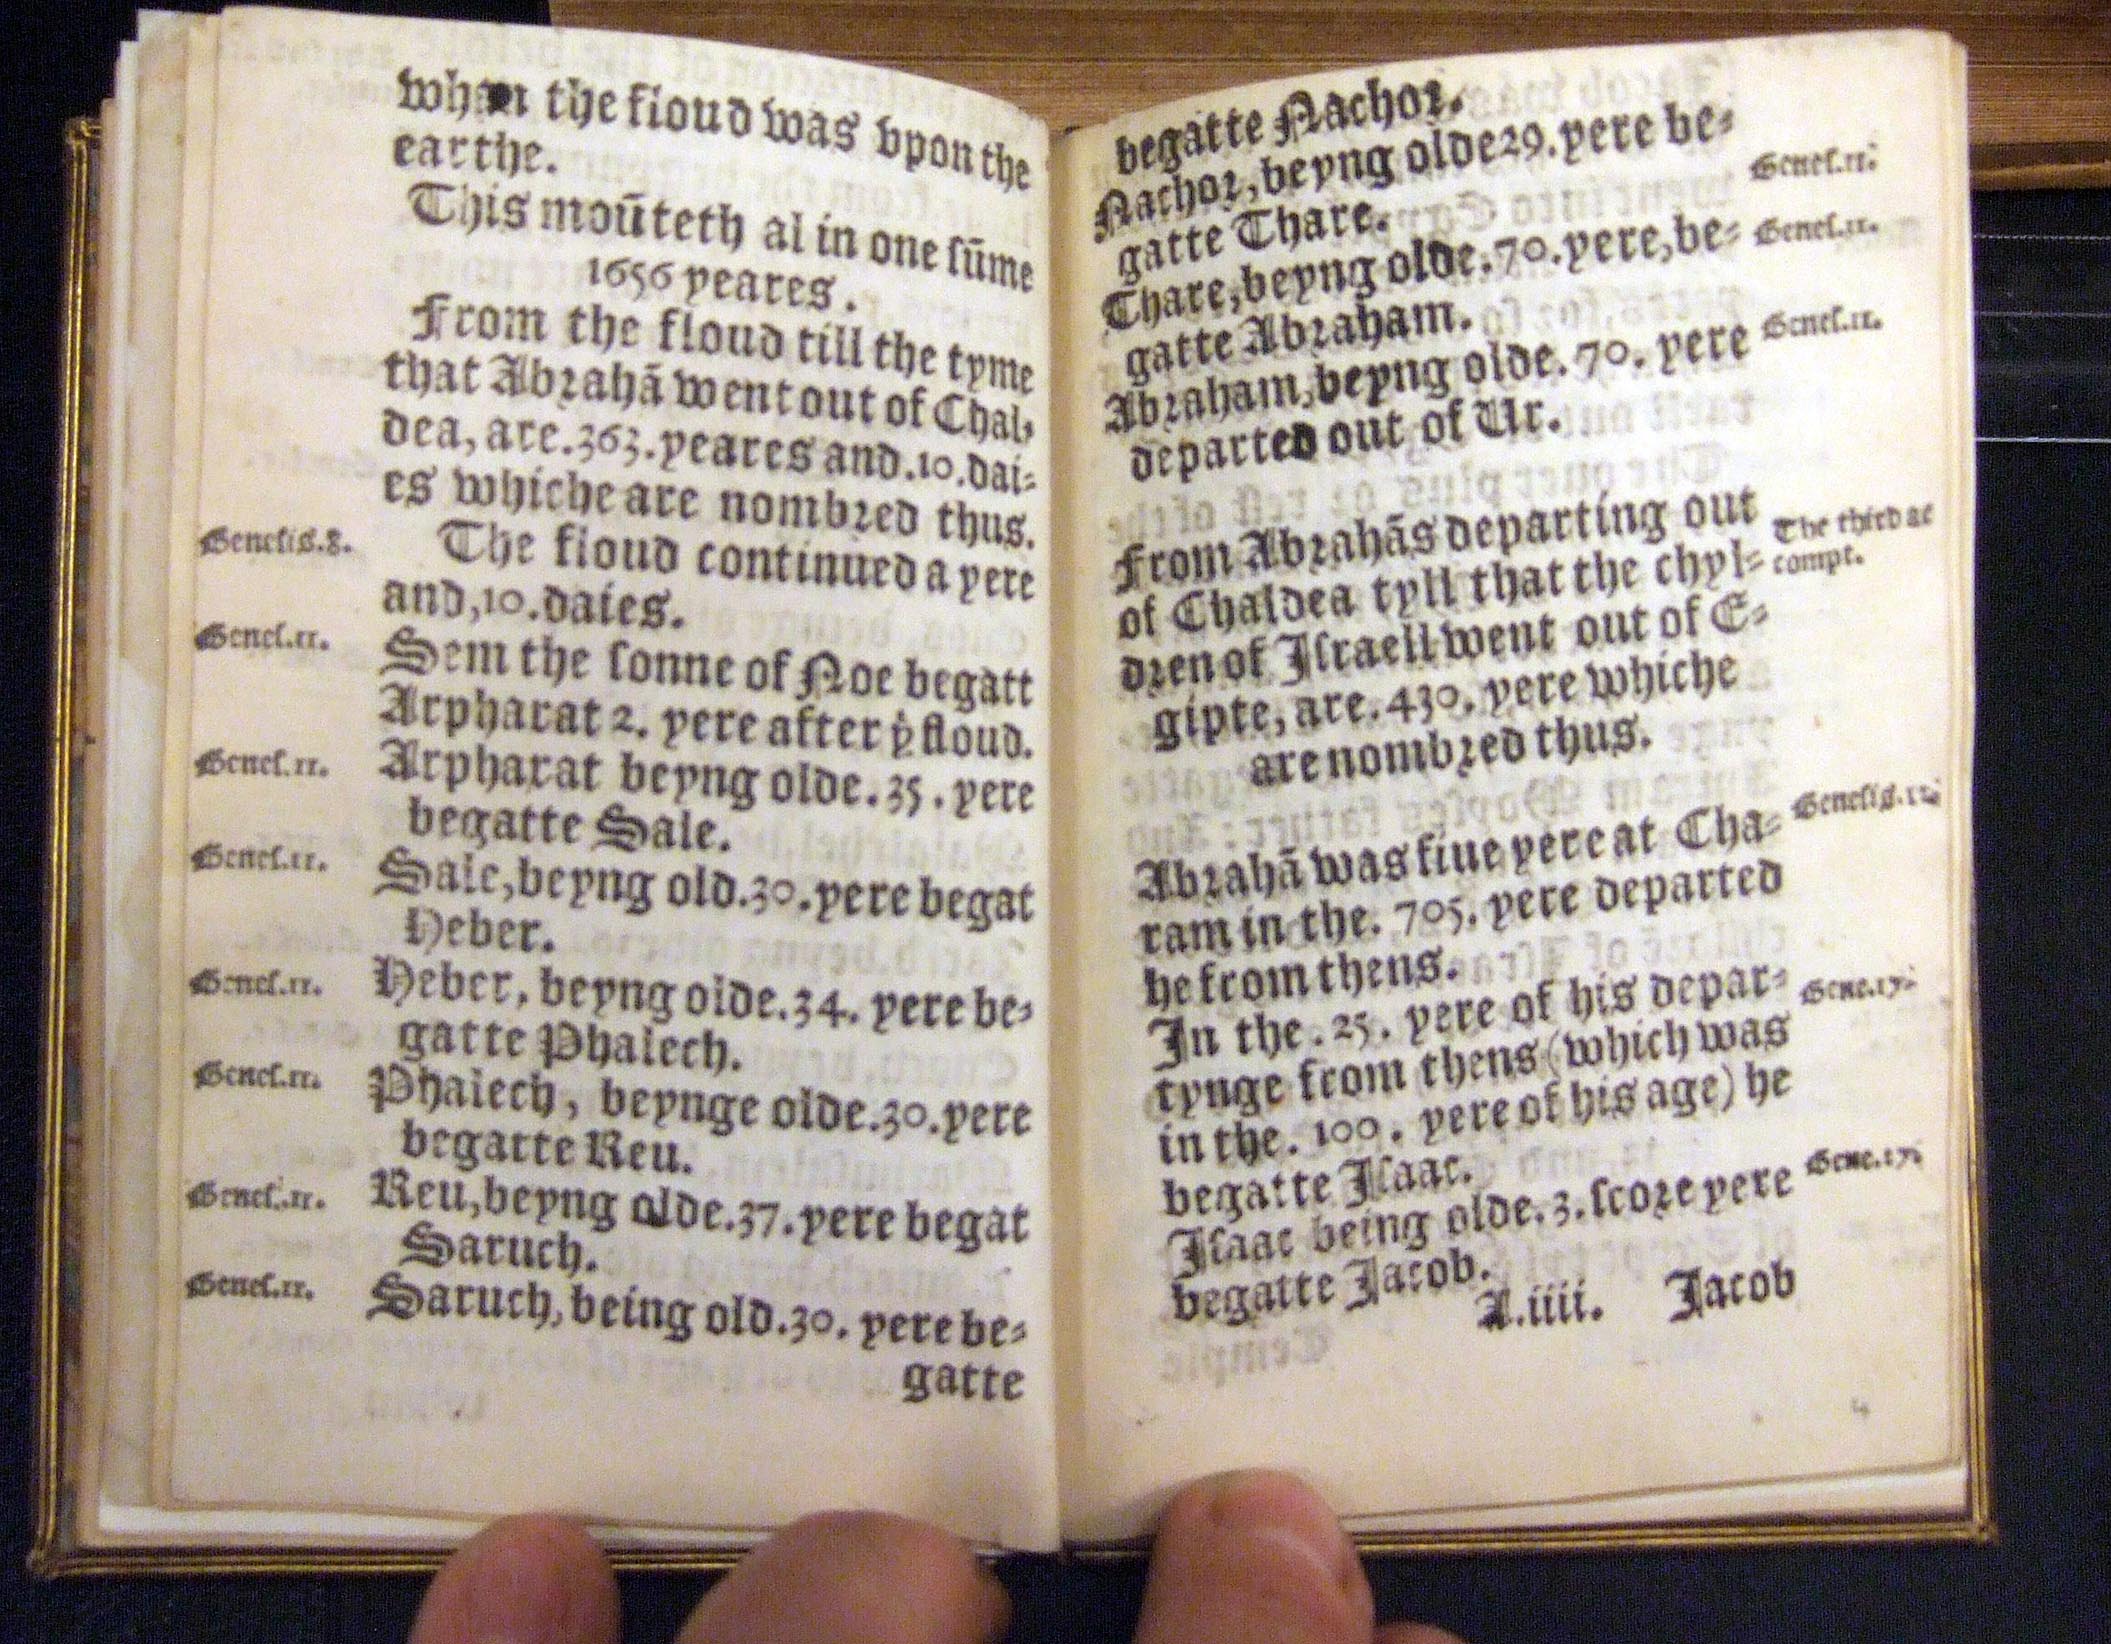 when the floud was vpon the
earthe.
This moũteth al in one sũme
1656 yeares.
From the floud till the tyme
that Abrahã went out of Chal,
dea, are.363.yeares and.10.dai=
es whiche are nombred thus.
Genesis.8.
The floud continued a yere
and,10.daies.
Genes.11.
Sem the sonne of Noe begatt
Arpharat 2. yere after yͤ floud.
Genes.11.
Arpharat beyng olde.35.yere
begatte Sale.
Genes.11.
Sale,beyng old.30.yere begat
Heber.
Genes.11.
Heber, beyng olde.34. yere be=
gatte Phalech.
Genes.11.
Phalech, beynge olde.30.yere
begatte Reu.
Genes.11.
Reu,beyng olde.37.yere begat
Saruch.
Genes.11.
Saruch,being old.30. yere be=
gatte
begatte Nachor.
Nachor,beyng olde29.yere be=
Genes.11.
gatte Thare.
Thare,beyng olde.70.yere,be=
Genes.11.
gatte Abraham.
Abraham,beyng olde.70. yere
Genes.11.
departed out of Ur.
From Abrahãs departing out
The third ac
compt.
of Chaldea tyll that the chyl=
dren of Israell went out of E=
gipte, are.430. yere whiche
are nombred thus.
Abrahã was fiue yere at Cha=
Genesis.12.
ram in the. 705. yere departed
he from thens.
In the.25. yere of his depar=
Gene.17.
tynge from thens (which was
in the.100. yere of his age) he
begatte Isaac.
Isaac being olde.3.score yere
Gene.17.
begatte Jacob.
A.iiii.
Jacob
4